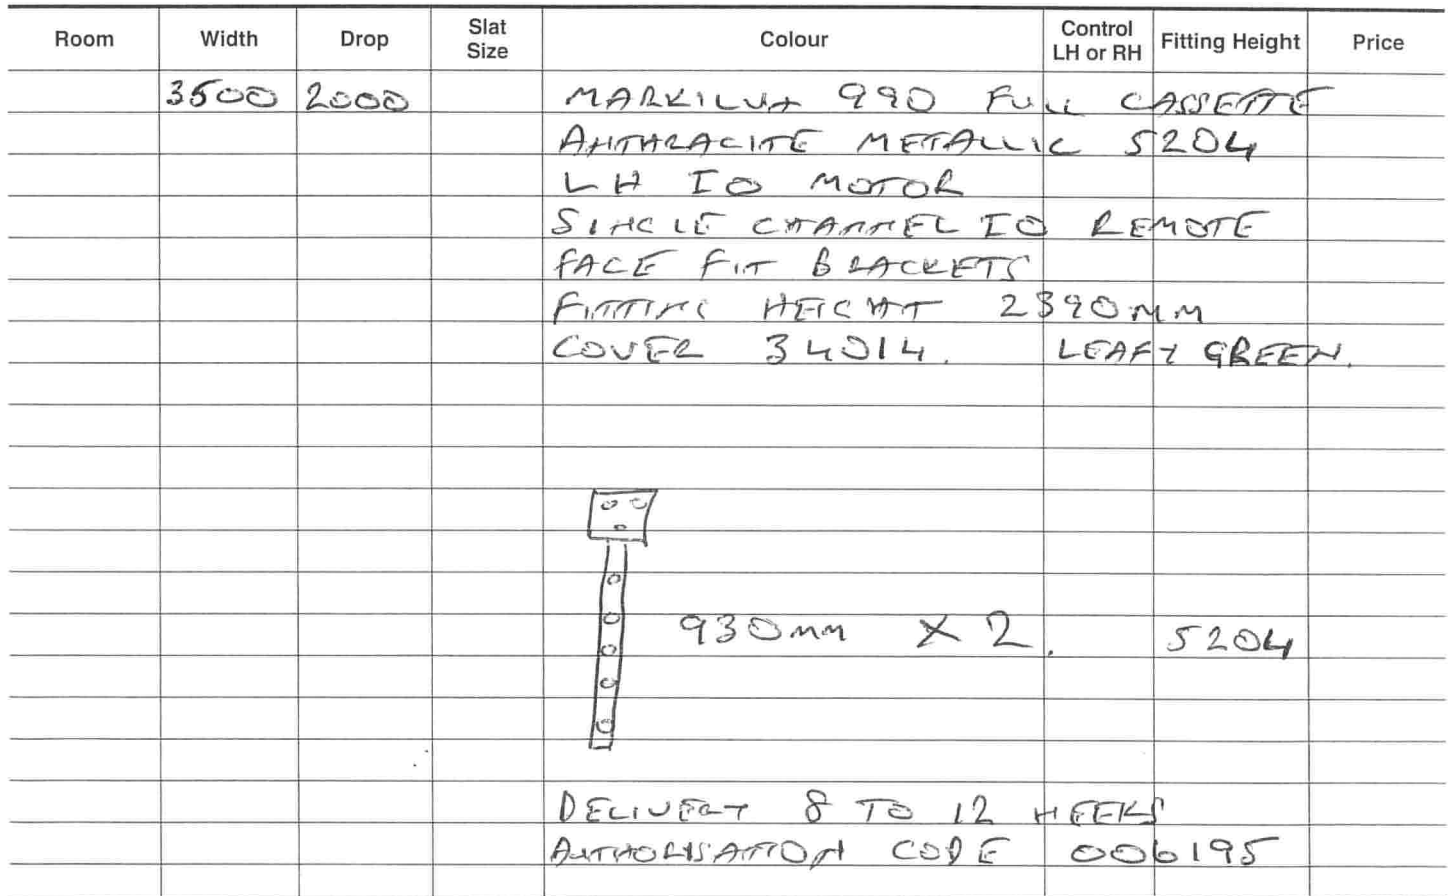 Room Width Drop Slat Size Colour Control LH or RH Fitting Height Price
3500 2000 MARKILUX 990 FULL CASSETTE
ANTHRACITE METALLIC 5204
LH IO MOTOR
SINGLE CHANNEL IO REMOTE
FACE FIT BRACKETS
FITTING HEIGHT 2390MM
COVER 34014. LEAFY GREEN.
930mm X 2. 5204
DELIVERY 8 TO 12 WEEKS
AUTHORISATION CODE 006195